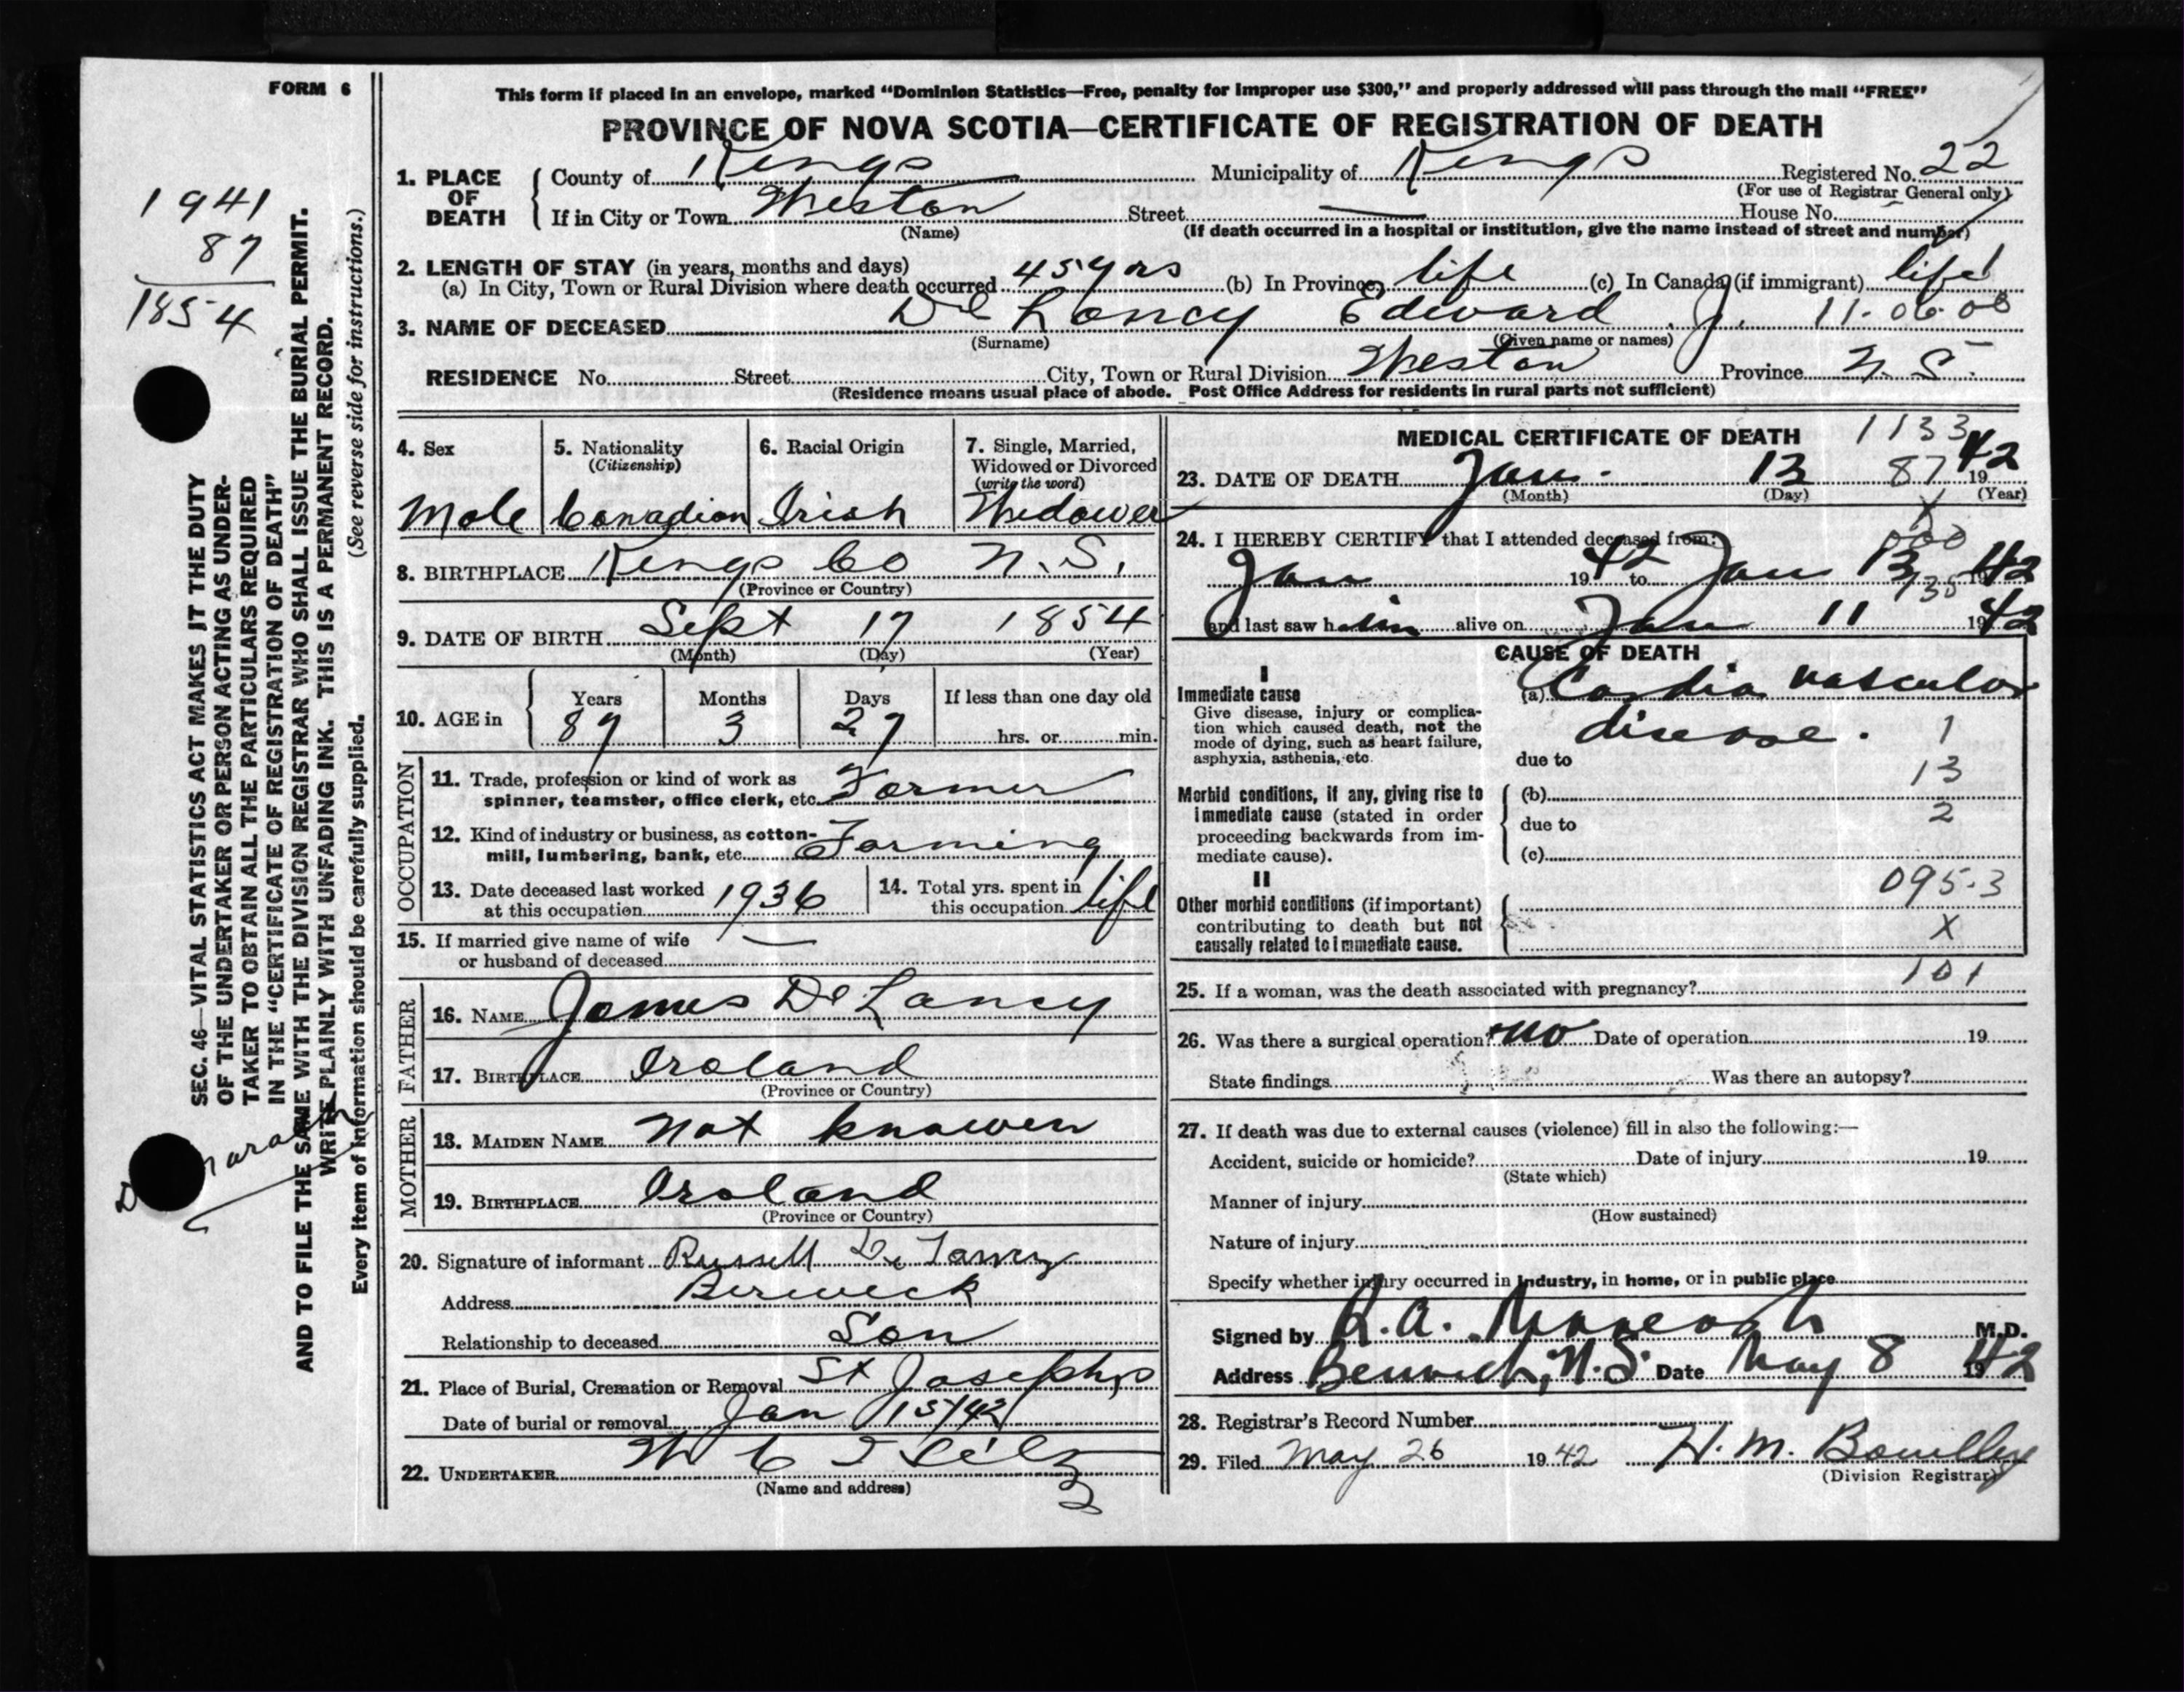 FORM 6
This form if placed in an envelope, marked "Dominion Statistics—Free, penalty for improper use $300," and properly addressed will pass through the mail "FREE"
PROVINCE OF NOVA SCOTIA—CERTIFICATE OF REGISTRATION OF DEATH
1941
87
1854
SEC. 46—VITAL STATISTICS ACT MAKES IT THE DUTY
OF THE UNDERTAKER OR PERSON ACTING AS UNDER-
TAKER TO OBTAIN ALL THE PARTICULARS REQUIRED
IN THE "CERTIFICATE OF REGISTRATION OF DEATH"
AND TO FILE THE SAME WITH THE DIVISION REGISTRAR WHO SHALL ISSUE THE BURIAL PERMIT.
WRITE PLAINLY WITH UNFADING INK. THIS IS A PERMANENT RECORD.
Every item of information should be carefully supplied. (See reverse side for instructions.)
1. PLACE OF DEATH County of Kings Municipality of Kings Registered No. 22
(For use of Registrar General only)
If in City or Town Weston Street — House No.
(Name) (If death occurred in a hospital or institution, give the name instead of street and number)
2. LENGTH OF STAY (in years, months and days)
(a) In City, Town or Rural Division where death occurred 45 yrs (b) In Province life (c) In Canada (if immigrant) life
3. NAME OF DECEASED De Lancy Edward J. 11-06-00
(Surname) (Given name or names)
RESIDENCE No. Street City, Town or Rural Division Weston Province N.S.
(Residence means usual place of abode. Post Office Address for residents in rural parts not sufficient)
4. Sex 5. Nationality (Citizenship) 6. Racial Origin 7. Single, Married, Widowed or Divorced (write the word)
Male Canadian Irish Widower
8. BIRTHPLACE Kings Co N.S.
(Province or Country)
9. DATE OF BIRTH Sept 17 1854
(Month) (Day) (Year)
10. AGE in Years Months Days If less than one day old
87 3 27 hrs. or min.
OCCUPATION
11. Trade, profession or kind of work as
spinner, teamster, office clerk, etc. Farmer
12. Kind of industry or business, as cotton-
mill, lumbering, bank, etc. Farming
13. Date deceased last worked at this occupation 1936 14. Total yrs. spent in this occupation life
15. If married give name of wife —
or husband of deceased
FATHER
16. NAME James De Lancy
17. BIRTHPLACE Ireland
(Province or Country)
MOTHER
18. MAIDEN NAME not knowen
19. BIRTHPLACE Ireland
(Province or Country)
20. Signature of informant Russell De Lancy
Address Berwick
Relationship to deceased Son
21. Place of Burial, Cremation or Removal St Josephs
Date of burial or removal Jan 15/42
22. UNDERTAKER W C
(Name and address)
MEDICAL CERTIFICATE OF DEATH 1133
23. DATE OF DEATH Jan. 13 87 1942
(Month) (Day) (Year)
X
24. I HEREBY CERTIFY that I attended deceased from: 000
Jan 1942 to Jan 13 1942
135
and last saw him alive on Jan 11 1942
CAUSE OF DEATH
I
Immediate cause (a) Cardio vascular
Give disease, injury or complica-
tion which caused death, not the
mode of dying, such as heart failure,
asphyxia, asthenia, etc.
disease. 1
due to
13
Morbid conditions, if any, giving rise to (b)
immediate cause (stated in order due to 2
proceeding backwards from im-
mediate cause). (c)
II 095-3
Other morbid conditions (if important)
contributing to death but not X
causally related to immediate cause.
101
25. If a woman, was the death associated with pregnancy?
26. Was there a surgical operation? no Date of operation 19
State findings Was there an autopsy?
27. If death was due to external causes (violence) fill in also the following:—
Accident, suicide or homicide? Date of injury 19
(State which)
Manner of injury
(How sustained)
Nature of injury
Specify whether injury occurred in industry, in home, or in public place
Signed by M.D.
Address Berwick, N.S. Date May 8 1942
28. Registrar's Record Number
29. Filed May 26 1942 H. M.
(Division Registrar)